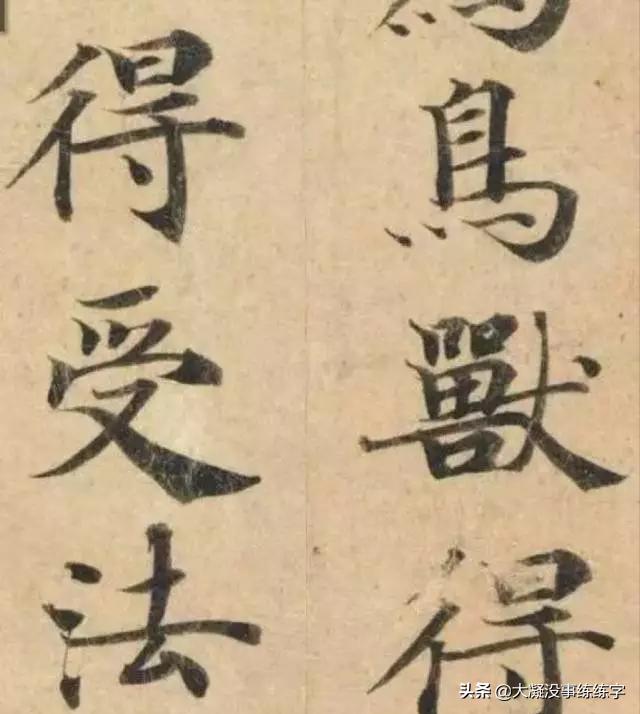 鳥獸得
得受法
头条 @大凝没事练练字